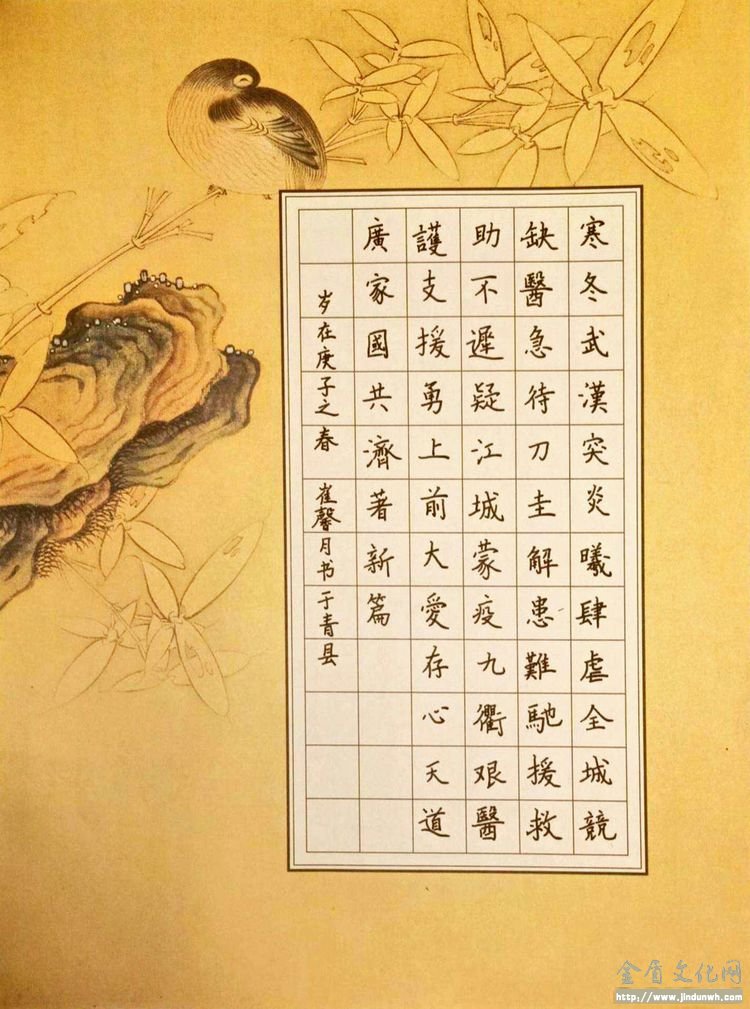 寒冬武漢突炎曦肆虐全城競
缺醫急待刀圭解患難馳援救
助不遲疑江城蒙疫九衢艰醫
護支援勇上前大愛存心天道
廣家國共濟著新篇
岁在庚子之春 崔馨月书于青县
金盾文化网
http://www.jindunwh.com